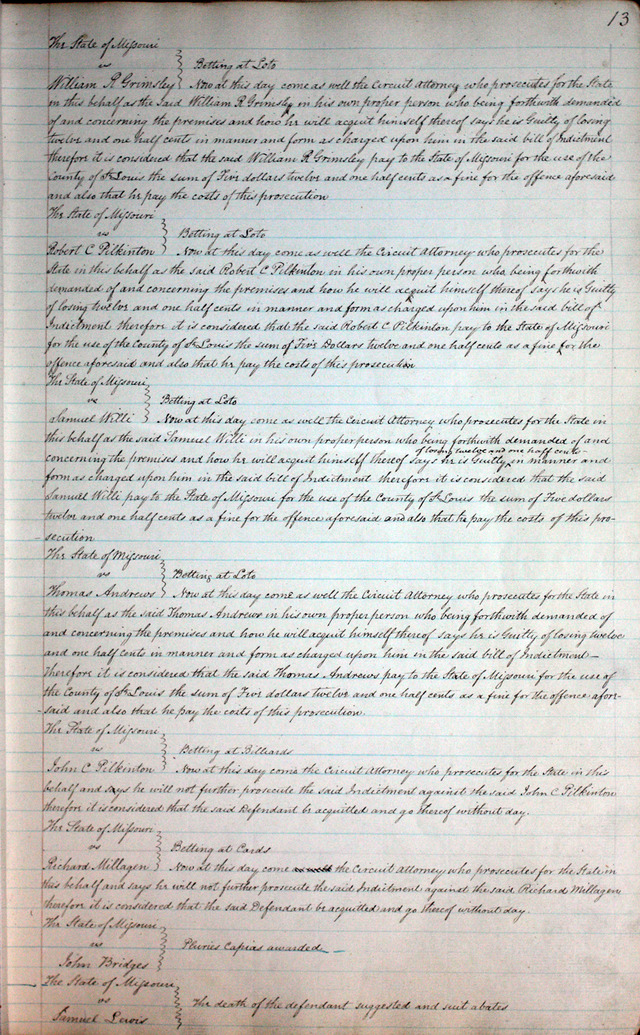 13
The State of Missouri
vs } Betting at Loto
William R Grimsley } Now at this day come as well the Circuit Attorney who prosecutes for the State
in this behalf as the said William R Grimsley in his own proper person who being forthwith demanded
of and concerning the premises and how he will acquit himself thereof says he is Guilty of losing
twelve and one half cents in manner and form as charged upon him in the said bill of Indictment
therefore it is considered that the said William R Grimsley pay to the State of Missouri for the use of the
County of St Louis the sum of Five dollars twelve and one half cents as a fine for the offence aforesaid
and also that he pay the costs of this prosecution
The State of Missouri
vs } Betting at Loto
Robert C Pilkinton } Now at this day come as well the Circuit Attorney who prosecutes for the
State in this behalf as the said Robert C Pilkinton in his own proper person who being forthwith
demanded of and concerning the premises and how he will acquit himself thereof says he is Guilty
of losing twelve and one half cents in manner and form as charged upon him in the said bill of
Indictment therefore it is considered that the said Robert C Pilkinton pay to the State of Missouri
for the use of the County of St Louis the sum of Five Dollars twelve and one half cents as a fine for the
offence aforesaid and also that he pay the costs of this prosecution
The State of Missouri
vs } Betting at Loto
Samuel Willi } Now at this day come as well the Circuit Attorney who prosecutes for the State in
this behalf as the said Samuel Willi in his own proper person who being forthwith demanded of and
of losing twelve and one half cents
concerning the premises and how he will acquit himself thereof says he is Guilty in manner and
form as charged upon him in the said bill of Indictment therefore it is considered that the said
Samuel Willi pay to the State of Missouri for the use of the County of St Louis the sum of Five dollars
twelve and one half cents as a fine for the offence aforesaid and also that he pay the costs of this pro-
secution
The State of Missouri
vs } Betting at Loto
Thomas Andrews } Now at this day come as well the Circuit Attorney who prosecutes for the State in
this behalf as the said Thomas Andrews in his own proper person who being forthwith demanded of
and concerning the premises and how he will acquit himself thereof says he is Guilty of losing twelve
and one half cents in manner and form as charged upon him in the said bill of Indictment —
therefore it is considered that the said Thomas Andrews pay to the State of Missouri for the use of
the County of St Louis the sum of Five dollars twelve and one half cents as a fine for the offence afore-
said and also that he pay the costs of this prosecution.
The State of Missouri
vs } Betting at Billiards
John C Pilkinton } Now at this day come the Circuit Attorney who prosecutes for the State in this
behalf and says he will not further prosecute the said Indictment against the said John C Pilkinton
therefore it is considered that the said Defendant be acquitted and go thereof without day.
The State of Missouri
vs } Betting at Cards
Richard Millagen } Now at this day come the Circuit Attorney who prosecutes for the State in
this behalf and says he will not further prosecute the said Indictment against the said Richard Millagen
therefore it is considered that the said Defendant be acquitted and go thereof without day.
The State of Missouri
vs } Pluries Capias awarded —
John Bridges
The State of Missouri
vs } The death of the defendant suggested and suit abates
Samuel Lewis